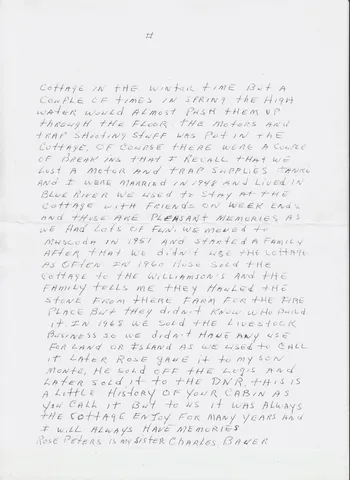 COTTAGE IN THE WINTER TIME BUT A
COUPLE OF TIMES IN SPRING THE HIGH
WATER WOULD ALMOST PUSH THEM UP
THROUGH THE FLOOR. THE MOTORS AND
TRAP SHOOTING STUFF WAS PUT IN THE
COTTAGE, OF COURSE THERE WERE A COUPLE
OF BREAK INS THAT I RECALL THAT WE
LOST A MOTOR AND TRAP SUPPLIES.
AND I WERE MARRIED IN 1948 AND LIVED IN
BLUE RIVER WE USED TO STAY AT THE
COTTAGE WITH FRIENDS ON WEEK ENDS
AND THOSE ARE PLEASANT MEMORIES AS
WE HAD LOTS OF FUN. WE MOVED TO
MUSCODA IN 1951 AND STARTED A FAMILY
AFTER THAT WE DIDN'T USE THE COTTAGE
AS OFTEN. IN 1960 SOLD THE
COTTAGE TO THE WILLIAMSON'S AND THE
FAMILY TELLS ME THEY HAULED THE
STONE FROM THERE FARM FOR THE FIRE
PLACE BUT THEY DIDN'T KNOW WHO BUILD
IT. IN 1968 WE SOLD THE LIVESTOCK
BUSINESS SO WE DIDN'T HAVE ANY USE
FOR LAND OR ISLAND AS WE USED TO CALL
IT LATER ROSE GAVE IT TO MY SON
MONTE, HE SOLD OFF THE LOGS AND
LATER SOLD IT TO THE DNR, THIS IS
A LITTLE HISTORY OF YOUR CABIN AS
YOU CALL IT BUT TO US IT WAS ALWAYS
THE COTTAGE ENJOY FOR MANY YEARS AND
I WILL ALWAYS HAVE MEMORIES
ROSE PETERS IS MY SISTER CHARLES BAUER